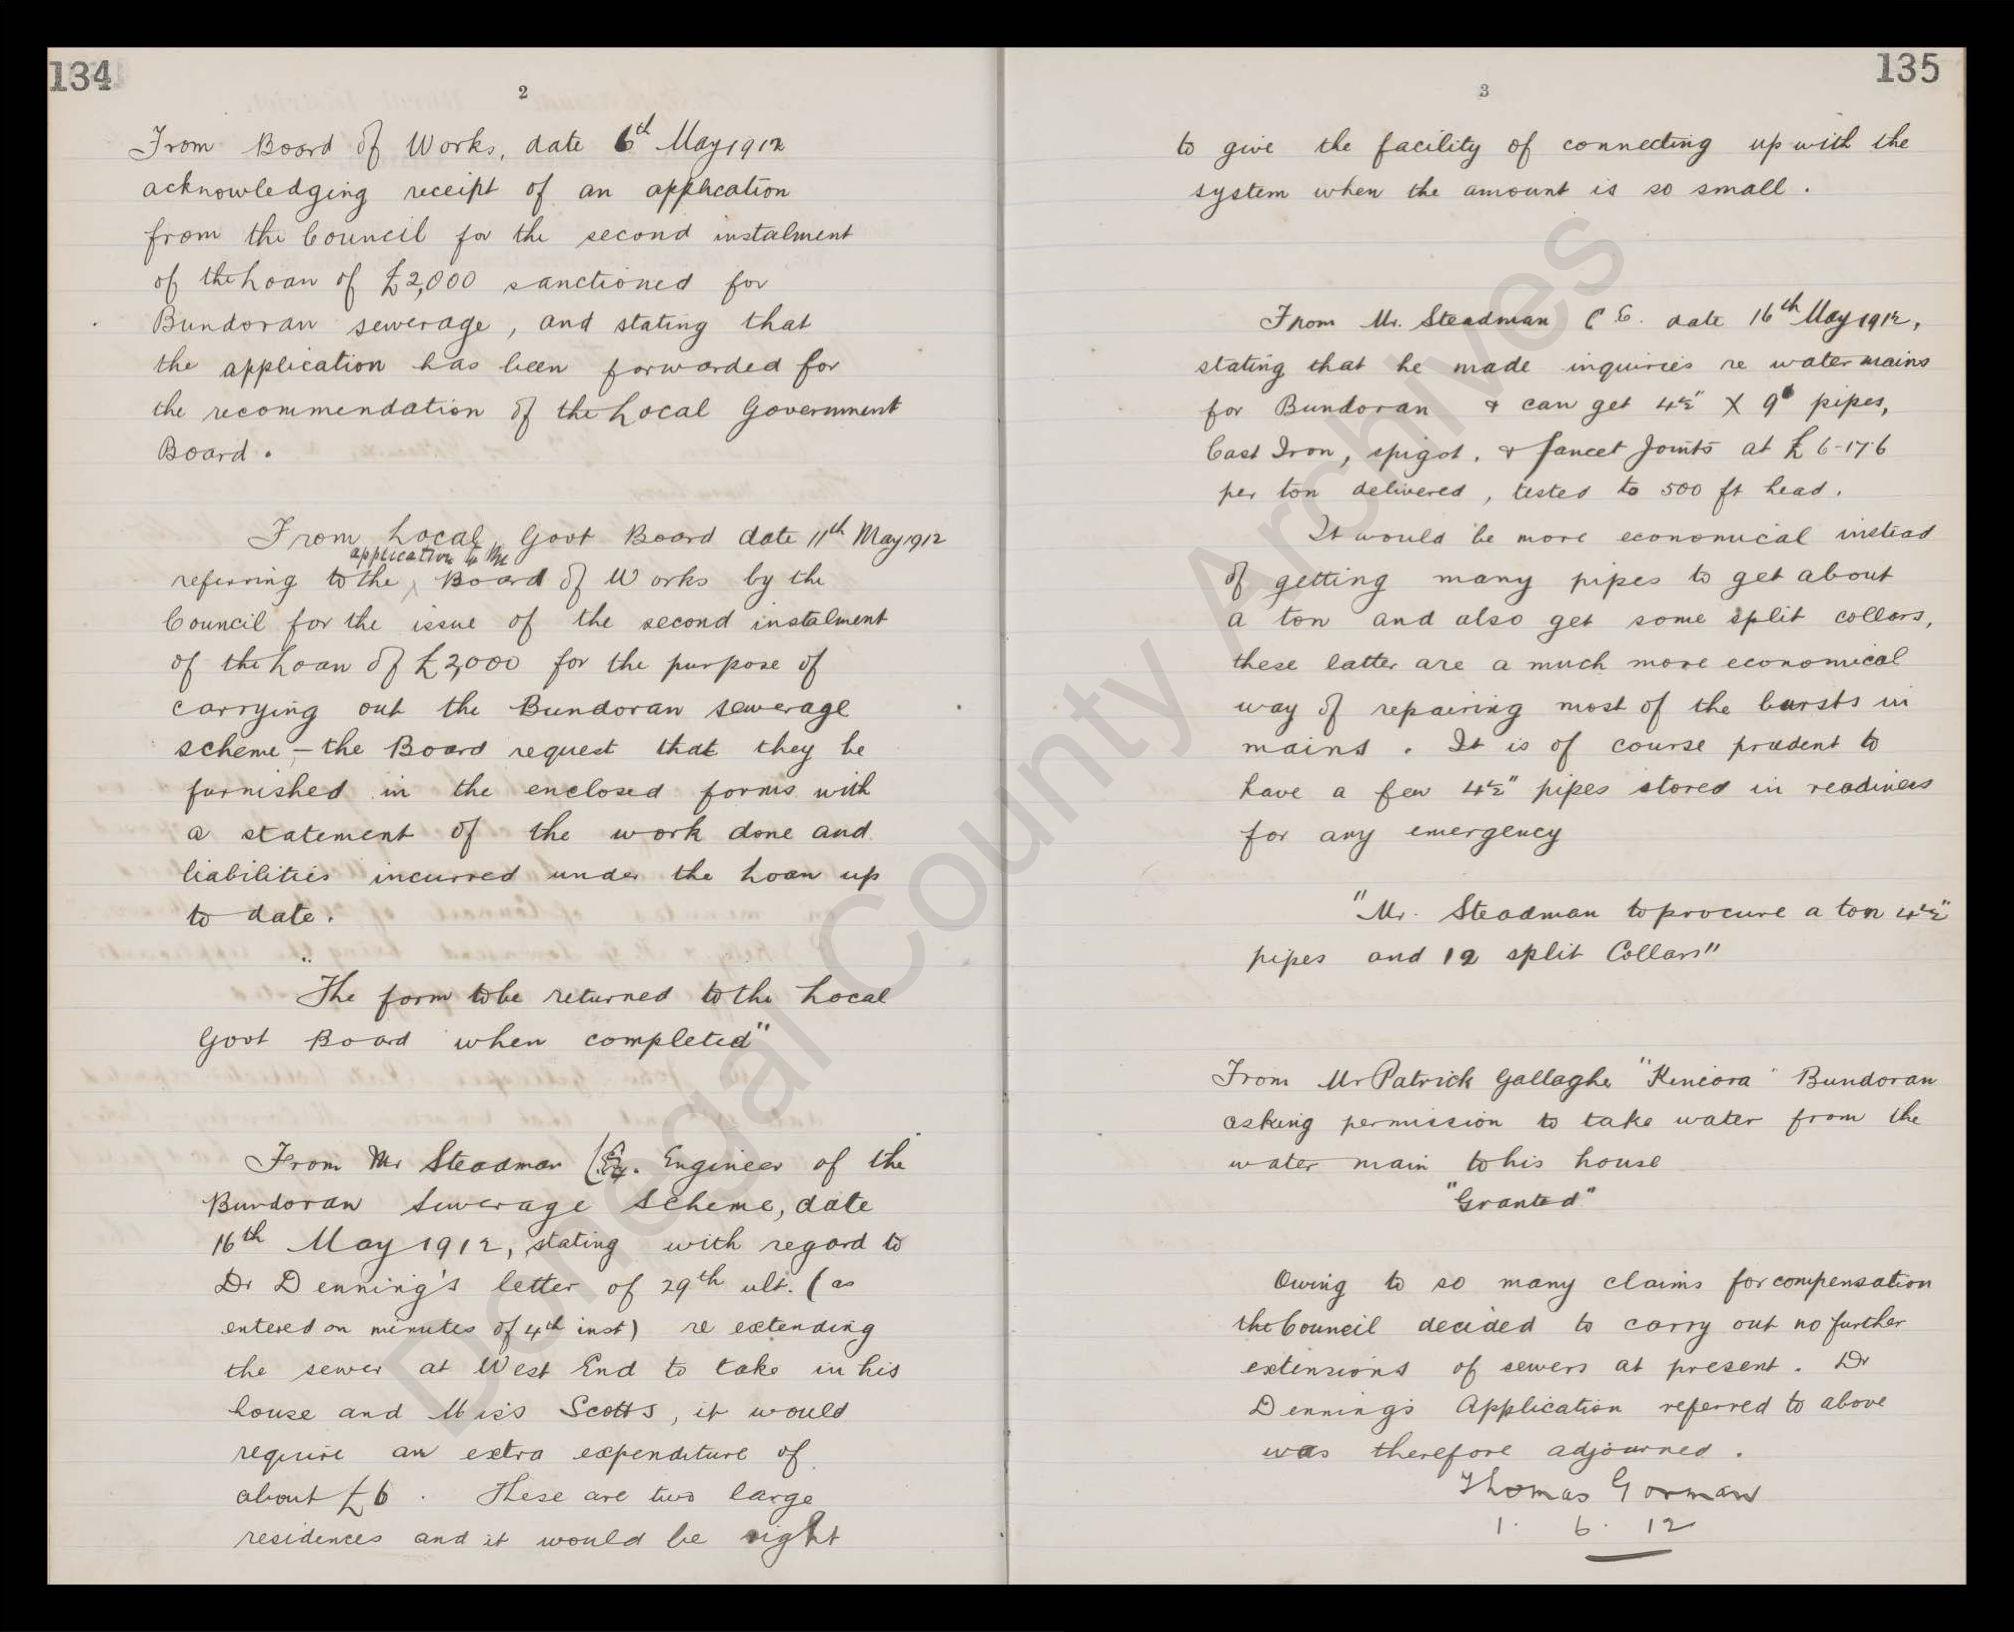 134
2
From Board of Works, date 6th May 1912
acknowledging receipt of an application
from the Council for the second instalment
of the Loan of £2,000 sanctioned for
Bundoran sewerage, and stating that
the application has been forwarded for
the recommendation of the Local Government
Board.
From Local Govt Board date 11th May 1912
application to the
referring to the Board of Works by the
Council for the issue of the second instalment
of the Loan of £2,000 for the purpose of
carrying out the Bundoran sewerage
scheme, - the Board request that they be
furnished in the enclosed forms with
a statement of the work done and
liabilities incurred under the Loan up
to date.
"The form to be returned to the Local
Govt Board when completed"
From Mr Steadman Engineer of the
Bundoran Sewerage Scheme, date
16th May 1912, stating with regard to
Dr Denning's letter of 29th ult. (as
entered on minutes of 4th inst) re extending
the sewer at West End to take in his
house and Miss Scotts, it would
require an extra expenditure of
about £6. These are two large
residences and it would be right
135
3
to give the facility of connecting up with the
system when the amount is so small.
From Mr. Steadman C E. date 16th May 1912,
stating that he made inquiries re water mains
for Bundoran & can get 4½" X 9' pipes,
Cast Iron, spigot, & fancet Joints at £6-17-6
per ton delivered, tested to 500 ft head.
It would be more economical instead
of getting many pipes to get about
a ton and also get some split collars,
these latter are a much more economical
way of repairing most of the bursts in
mains. It is of course prudent to
have a few 4½" pipes stored in readiness
for any emergency
"Mr. Steadman to procure a ton 4½"
pipes and 12 split Collars"
From Mr Patrick Gallagher "Kincora" Bundoran
asking permission to take water from the
water main to his house
"Granted"
Owing to so many claims for compensation
the Council decided to carry out no further
extensions of sewers at present. Dr
Dennings Application referred to above
was therefore adjourned.
Thomas Gorman
1. 6. 12
Donegal County Archives